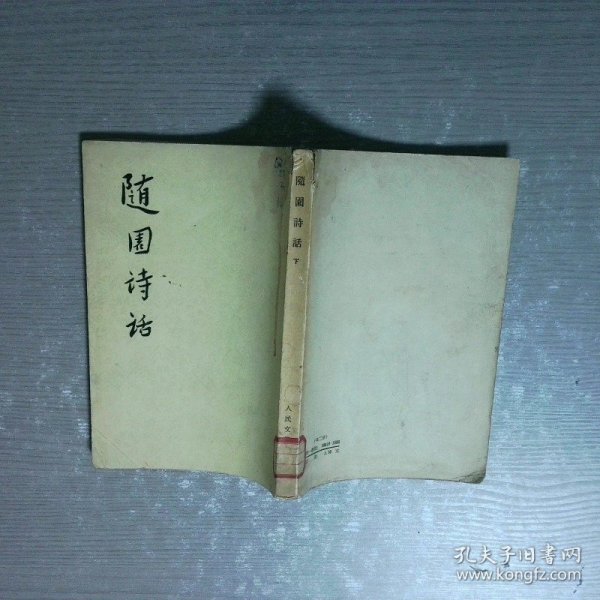 随園詩话
隨園詩話
下
人民文
孔夫子旧书网
www.kongfz.com